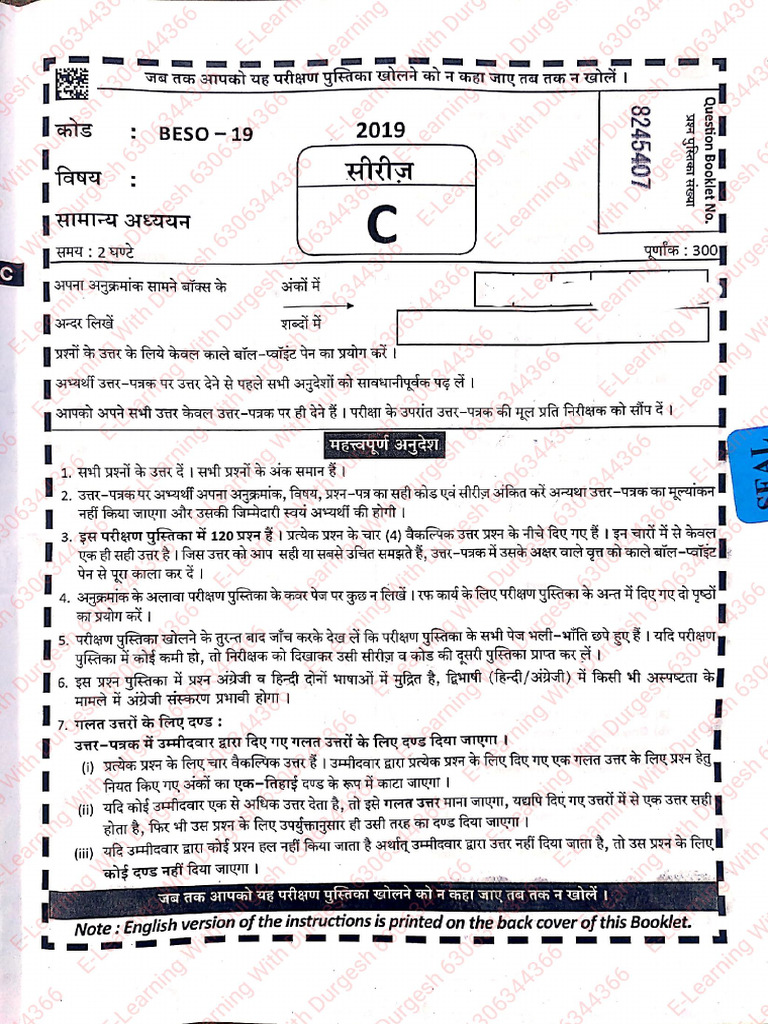 जब तक आपको यह परीक्षण पुस्तिका खोलने को न कहा जाए तब तक न खोलें ।
कोड : BESO – 19
2019
विषय :
सीरीज़
C
सामान्य अध्ययन
समय : 2 घण्टे
पूर्णांक : 300
Question Booklet No.
प्रश्न पुस्तिका संख्या
8245407
C
अपना अनुक्रमांक सामने बॉक्स के अंकों में
अन्दर लिखें शब्दों में
प्रश्नों के उत्तर के लिये केवल काले बॉल-प्वॉइंट पेन का प्रयोग करें ।
अभ्यर्थी उत्तर-पत्रक पर उत्तर देने से पहले सभी अनुदेशों को सावधानीपूर्वक पढ़ लें ।
आपको अपने सभी उत्तर केवल उत्तर-पत्रक पर ही देने हैं । परीक्षा के उपरांत उत्तर-पत्रक की मूल प्रति निरीक्षक को सौंप दें ।
महत्त्वपूर्ण अनुदेश
1. सभी प्रश्नों के उत्तर दें । सभी प्रश्नों के अंक समान हैं ।
2. उत्तर-पत्रक पर अभ्यर्थी अपना अनुक्रमांक, विषय, प्रश्न-पत्र का सही कोड एवं सीरीज़ अंकित करें अन्यथा उत्तर-पत्रक का मूल्यांकन
नहीं किया जाएगा और उसकी जिम्मेदारी स्वयं अभ्यर्थी की होगी ।
3. इस परीक्षण पुस्तिका में 120 प्रश्न हैं । प्रत्येक प्रश्न के चार (4) वैकल्पिक उत्तर प्रश्न के नीचे दिए गए हैं । इन चारों में से केवल
एक ही सही उत्तर है । जिस उत्तर को आप सही या सबसे उचित समझते हैं, उत्तर-पत्रक में उसके अक्षर वाले वृत्त को काले बॉल-प्वॉइंट
पेन से पूरा काला कर दें ।
4. अनुक्रमांक के अलावा परीक्षण पुस्तिका के कवर पेज पर कुछ न लिखें । रफ कार्य के लिए परीक्षण पुस्तिका के अन्त में दिए गए दो पृष्ठों
का प्रयोग करें ।
5. परीक्षण पुस्तिका खोलने के तुरन्त बाद जाँच करके देख लें कि परीक्षण पुस्तिका के सभी पेज भली-भाँति छपे हुए हैं । यदि परीक्षण
पुस्तिका में कोई कमी हो, तो निरीक्षक को दिखाकर उसी सीरीज़ व कोड की दूसरी पुस्तिका प्राप्त कर लें ।
6. इस प्रश्न पुस्तिका में प्रश्न अंग्रेजी व हिन्दी दोनों भाषाओं में मुद्रित है, द्विभाषी (हिन्दी/अंग्रेजी) में किसी भी अस्पष्टता के
मामले में अंग्रेजी संस्करण प्रभावी होगा ।
7. गलत उत्तरों के लिए दण्ड :
उत्तर-पत्रक में उम्मीदवार द्वारा दिए गए गलत उत्तरों के लिए दण्ड दिया जाएगा ।
(i) प्रत्येक प्रश्न के लिए चार वैकल्पिक उत्तर हैं । उम्मीदवार द्वारा प्रत्येक प्रश्न के लिए दिए गए एक गलत उत्तर के लिए प्रश्न हेतु
नियत किए गए अंकों का एक-तिहाई दण्ड के रूप में काटा जाएगा ।
(ii) यदि कोई उम्मीदवार एक से अधिक उत्तर देता है, तो इसे गलत उत्तर माना जाएगा, यद्यपि दिए गए उत्तरों में से एक उत्तर सही
होता है, फिर भी उस प्रश्न के लिए उपर्युक्तानुसार ही उसी तरह का दण्ड दिया जाएगा ।
(iii) यदि उम्मीदवार द्वारा कोई प्रश्न हल नहीं किया जाता है अर्थात् उम्मीदवार द्वारा उत्तर नहीं दिया जाता है, तो उस प्रश्न के लिए
कोई दण्ड नहीं दिया जाएगा ।
जब तक आपको यह परीक्षण पुस्तिका खोलने को न कहा जाए तब तक न खोलें ।
Note : English version of the instructions is printed on the back cover of this Booklet.
SEAL
E-Learning With Durgesh 6306344366